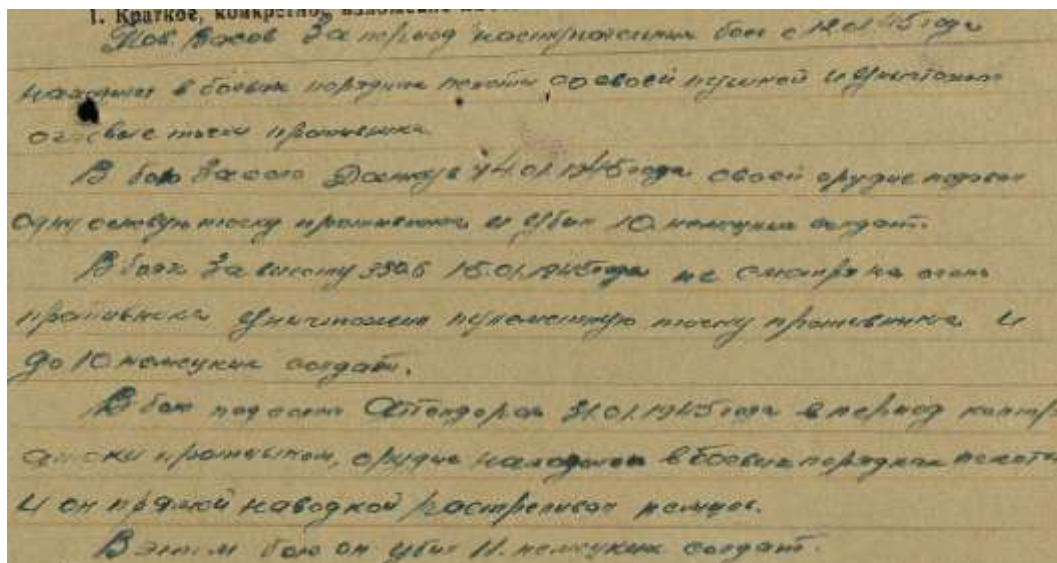 1. Краткое, конкретное изложение
Тов. Васов За период наступательных боев с 12.01.45 года
находился в боевых порядках пехоты со своей пушкой и уничтожал
огневые точки противника.
В бою За село 14.01.1945 года своей орудие подавил
одну огневую точку противника и убил 10 немецких солдат.
В боях За высоту 350,6 15.01.1945 года не смотря на огонь
противника уничтожено пулеметную точку противника и
до 10 немецких солдат.
В бою под селом 31.01.1945 года в период контр
атаки противником, орудие находился в боевых порядках пехоты
и он прямой наводкой растреливал немцев.
В этом бою он убил 11 немецких солдат.